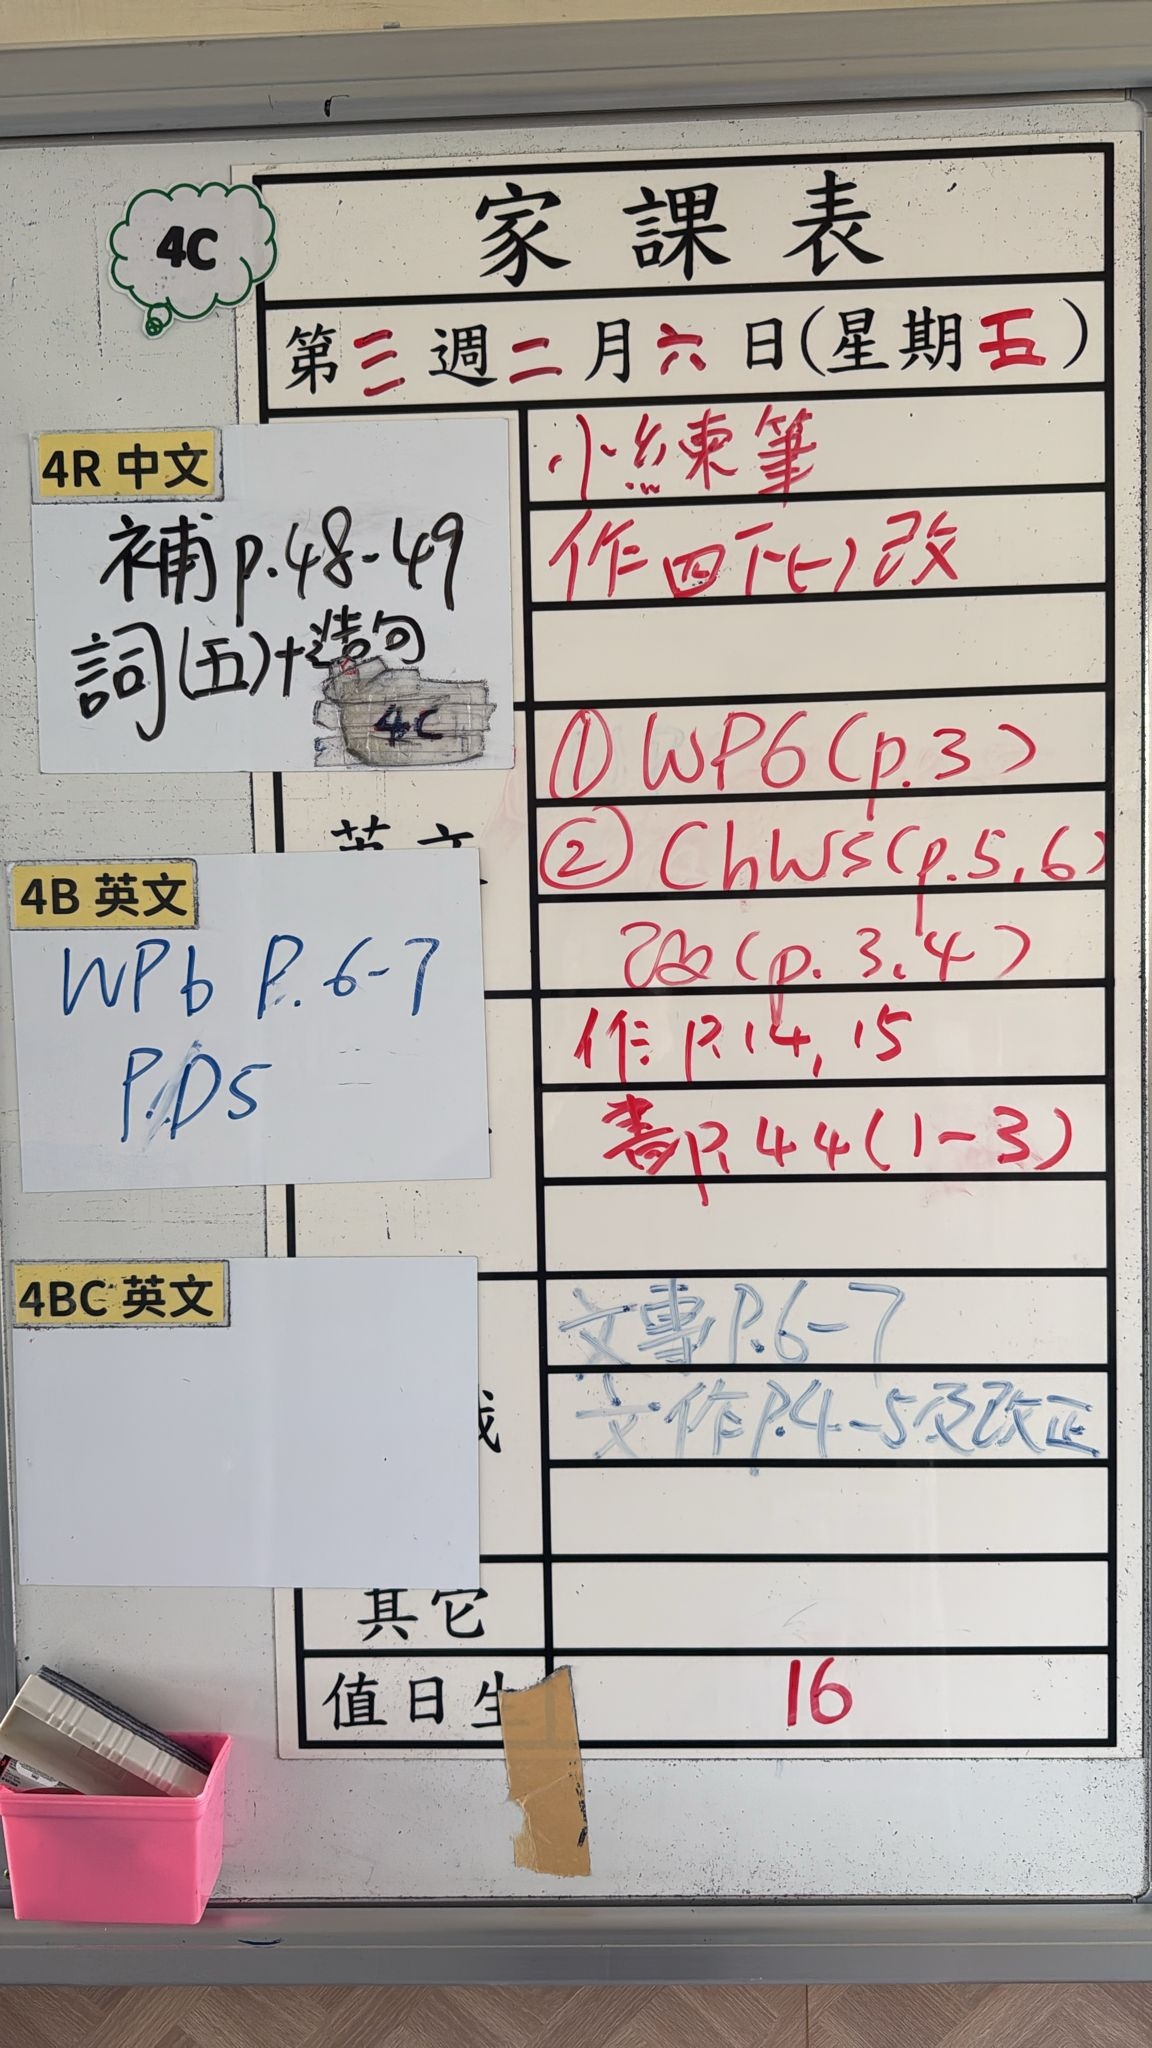 家課表
4C
第三週二月六日(星期五)
4R 中文
補p.48-49
詞(五)+造句
4C
小練筆
作四下(一)改
英文
① WP6(p.3)
② ChWS(p.5,6)
改(p.3,4)
4B 英文
WPb P.6-7
P.D5
作p.14,15
書p.44(1-3)
4BC 英文
文專P.6-7
文作P.4-5及改正
其它
值日生
16